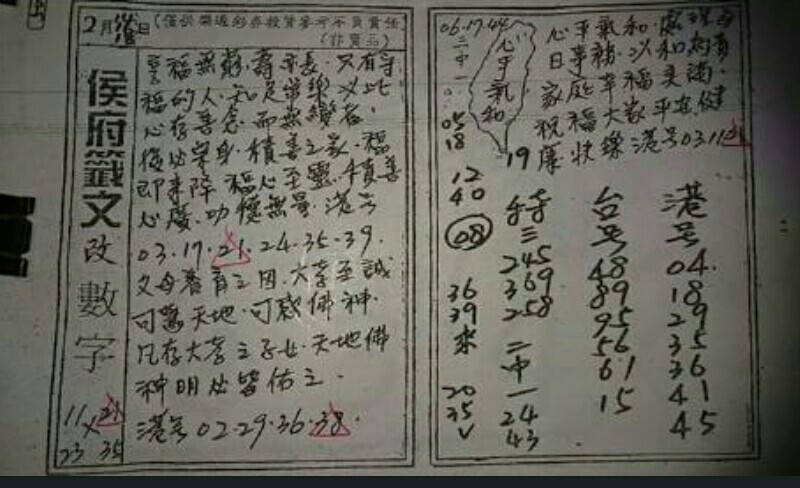 2月 日(僅供樂透彩券投資參考不負責任
(非賣品)
侯府籤文
改數字
11 X 21
23 35
享福無窮.壽年長.只有守
福的人.知足常樂以此
心存善念.而無
後必榮身.積善之家.福
即來降 福心至靈.積善
心慶.功德無量.港号
03.17.21.24.35.39.
父母養育之因.大孝至誠
可驚天地.可感佛神.
凡存大孝之子女.天地佛
神明必皆佑之.
港号02.29.36.38.
06.17.44
二中一
05
18
12
40
08
36
39
來
20
35
心平氣和
19
心平氣和.處理每
日事務.以和為貴
家庭幸福美滿.
祝福大家平安健
康快樂港号03.11.21
特
三
245
369
258
二
中
一
24
43
台
号
48
89
95
56
61
15
港
号
04.
18
29
35
36
41
45